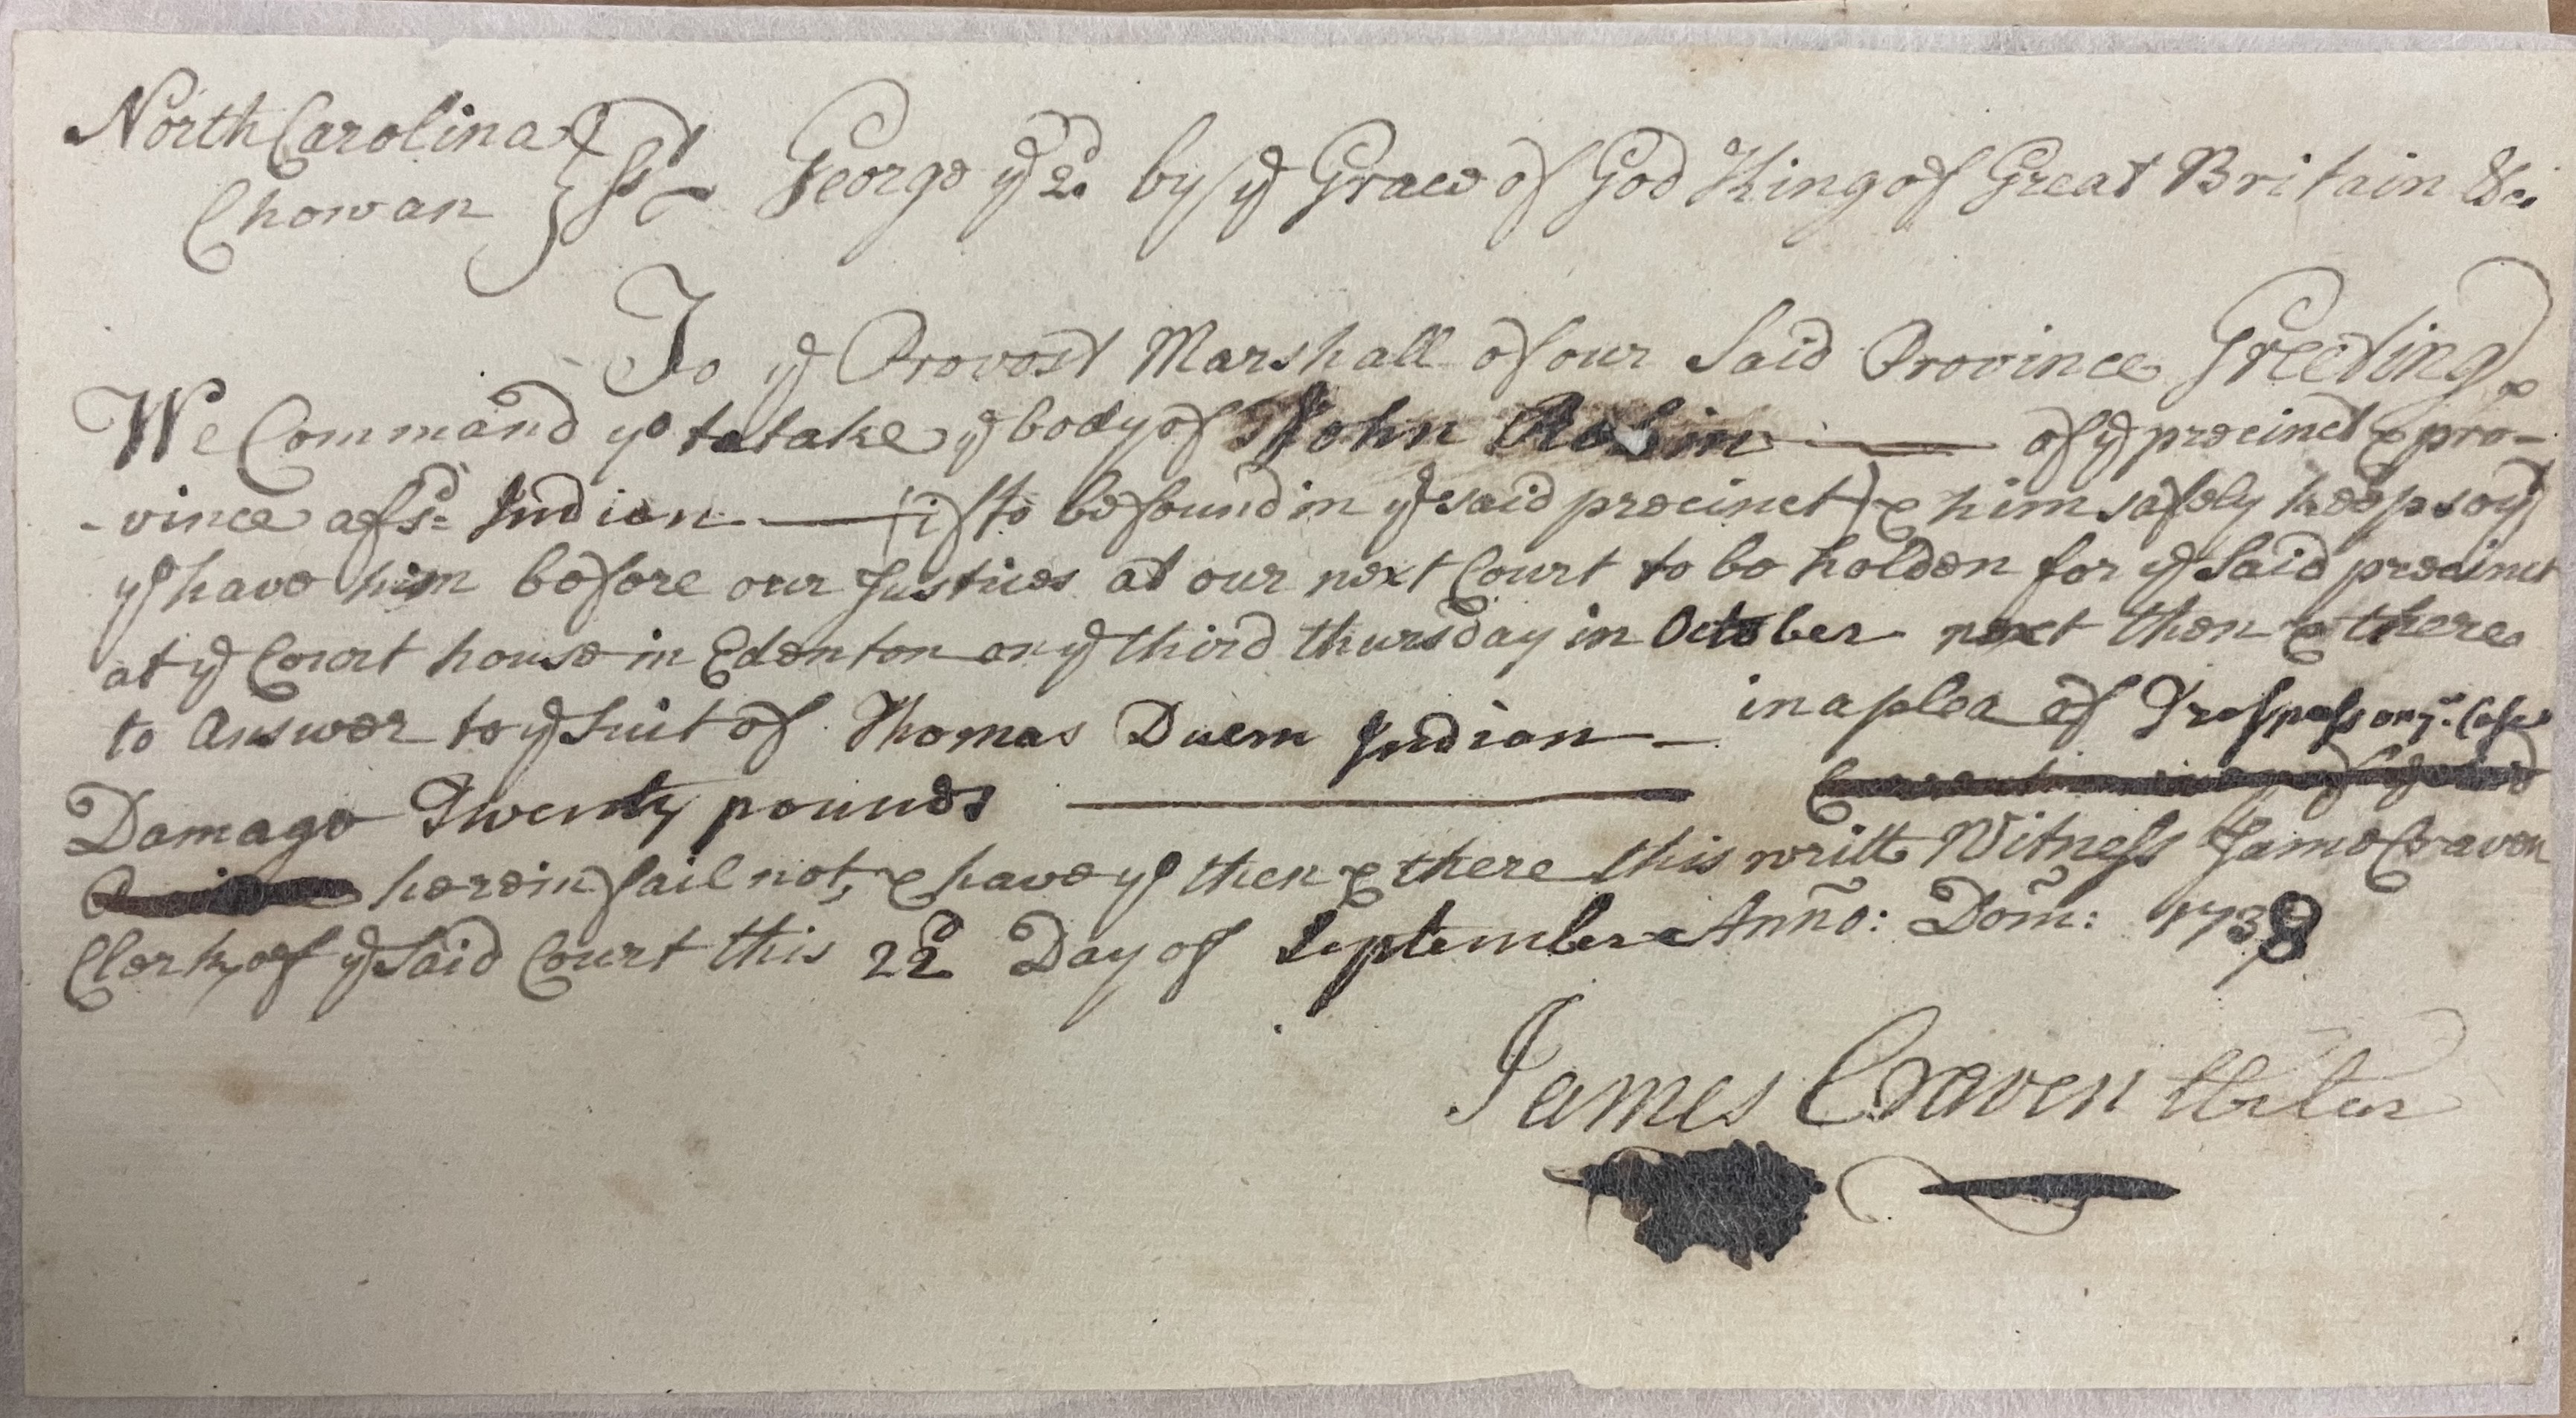 North Carolina } ss George ye 2d. by ye Grace of God King of Great Britain &c.
Chowan
To ye Provost Marshall of our Said Province Greeting
We Command yo to take ye body of John Robin — of ye precinct & pro-
-vince afsd: Indian — (if to be found in ye said precinct) & him safely keep so yt
yo have him before our Justices at our next Court to be holden for ye Said precinct
at ye Court house in Edenton on ye third thursday in October next then & there
to answer to ye Suit of Thomas Duem Indian — in a plea of Trespass on ye Case
Damage Twenty pounds —
herein fail not, & have yo then & there this writt Witness James Craven
Clerk of ye Said Court this 22d Day of September Anno: Dom: 1738
James Craven